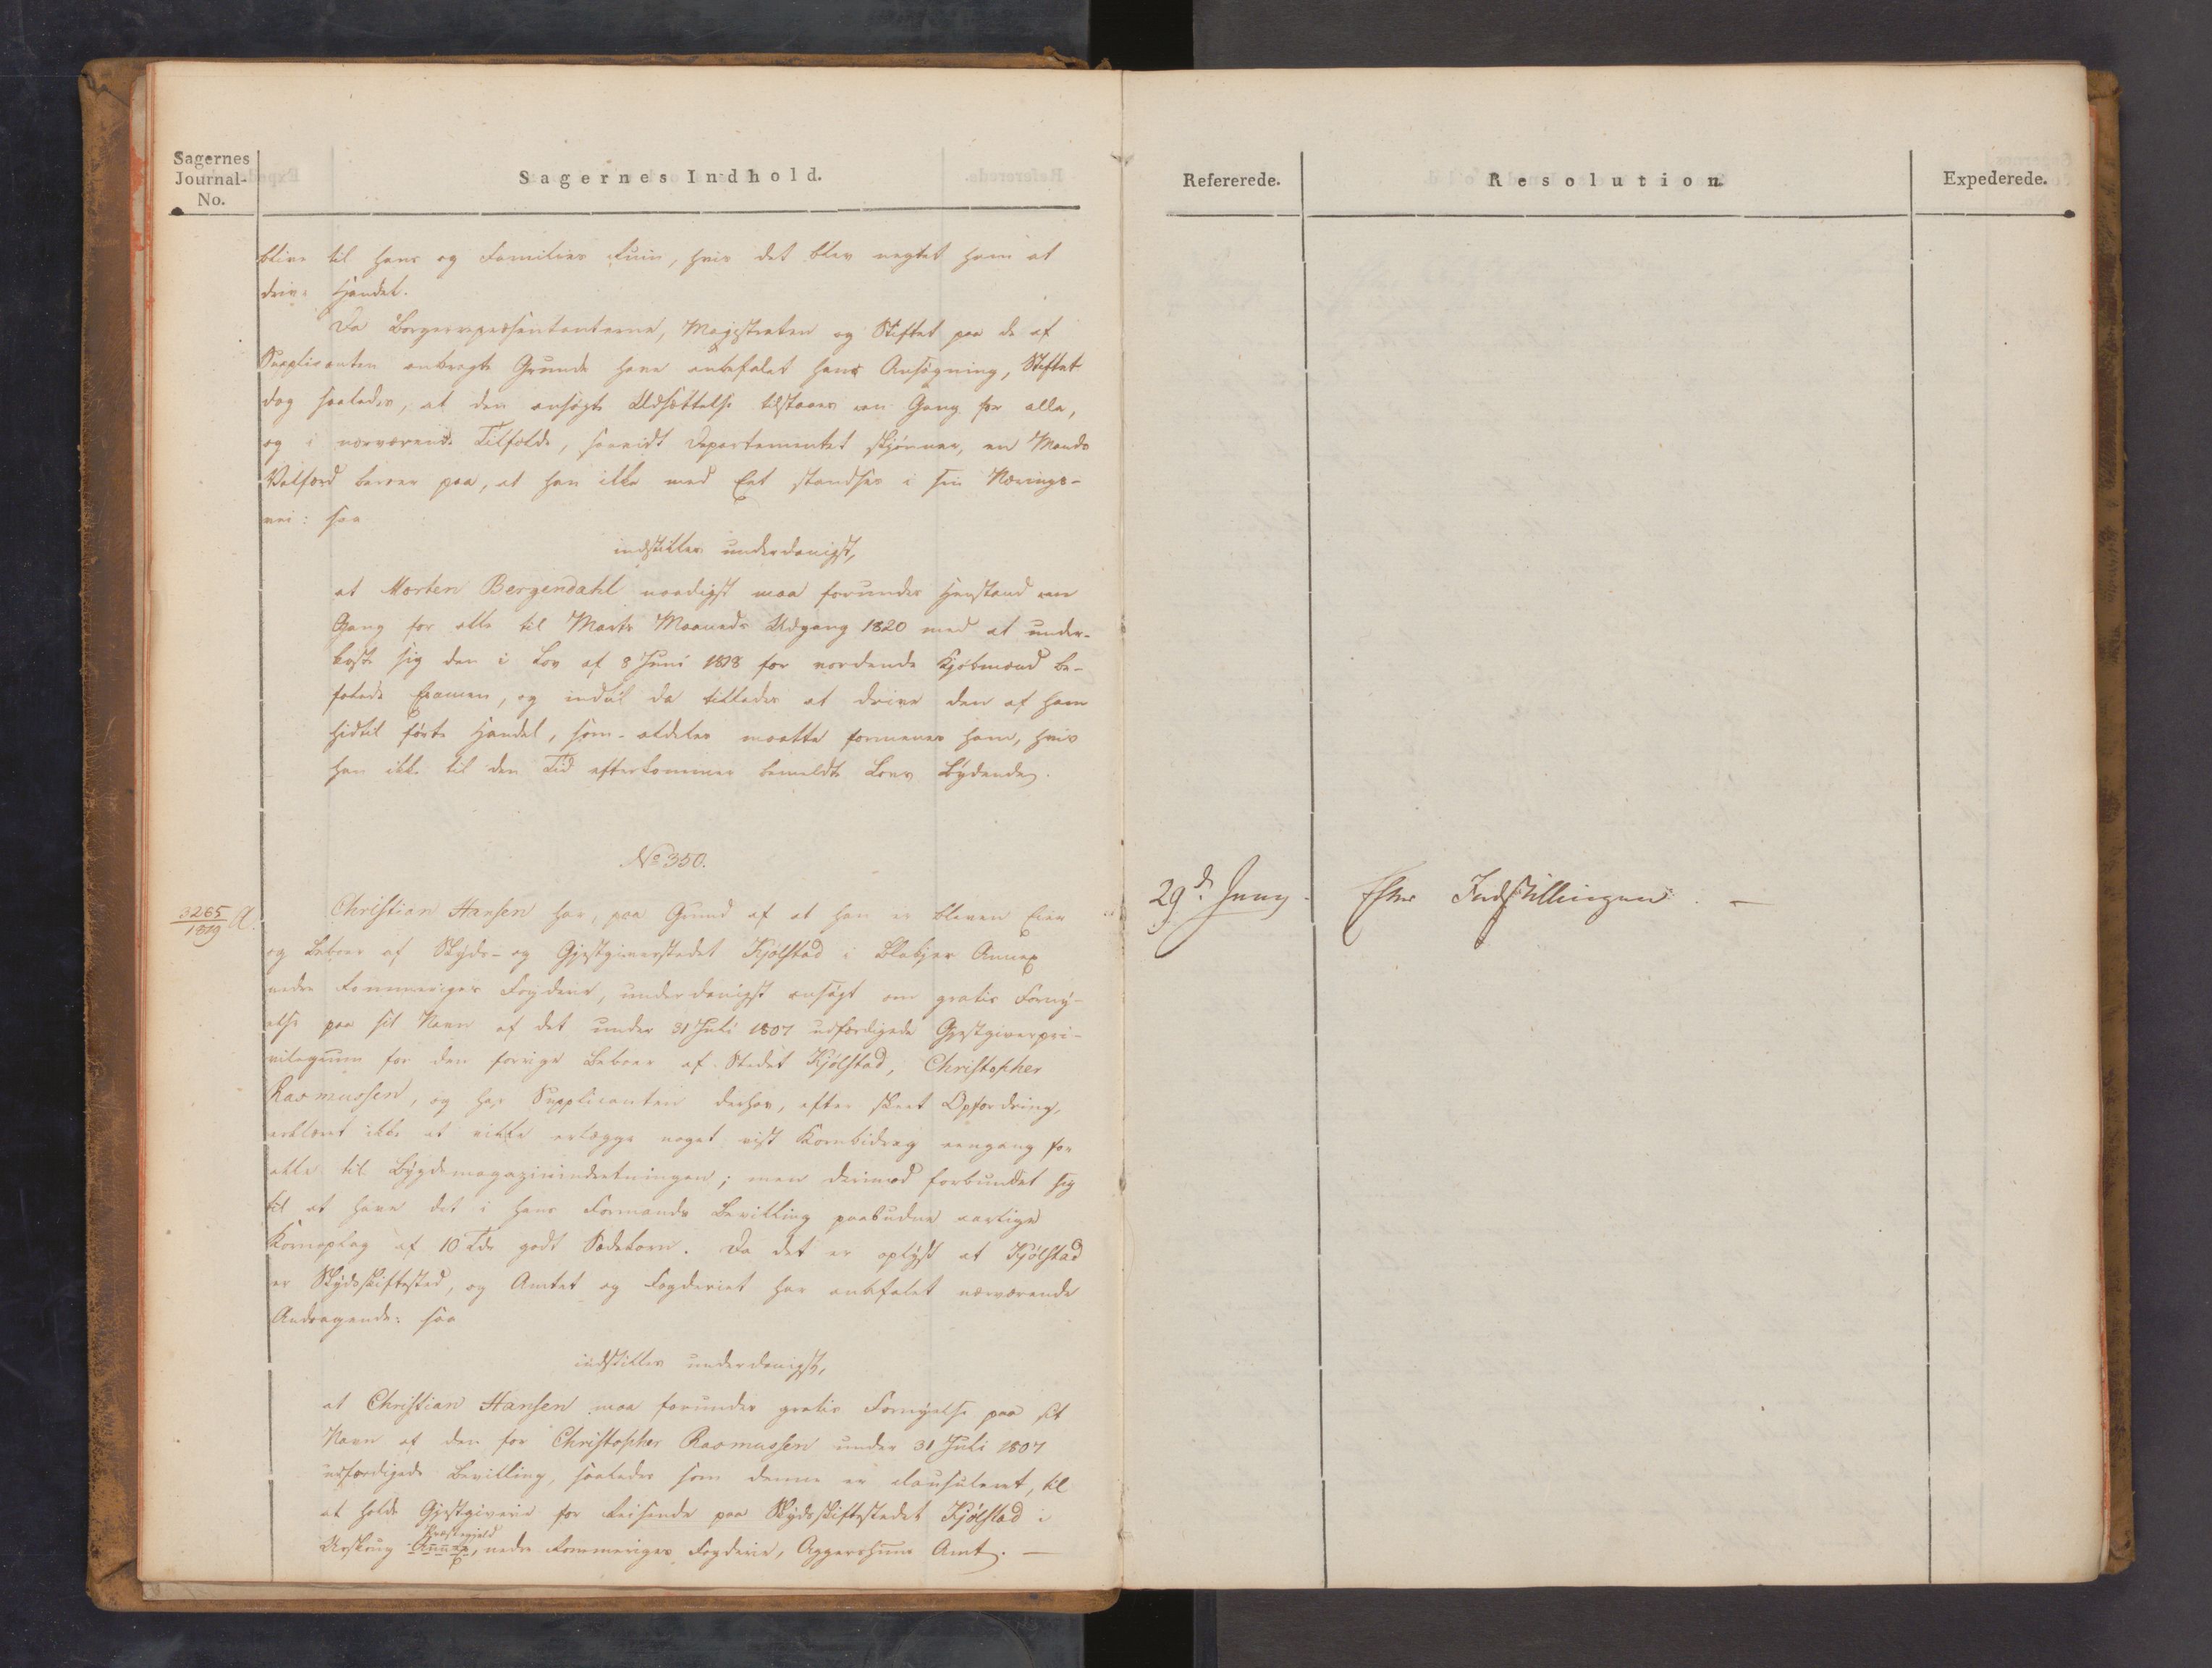 Sagernes
Journal-
No.
Sagernes Indhold.
blive til hans og Families Ruin, hvis det blev negtet ham at
drive Handel.
Da Borgerrepræsentanterne, Magistraten og Stiftet paa de af
Supplicanten anbragte Grunde have anbefalet hans Ansøgning, Stiftet
dog saaledes, at den ansøgte Udsættelse tilstaaes een Gang for alle,
og i nærværende Tilfælde, saavidt Departementet skjønner, en Mands
Velfærd beroer paa, at han ikke med Eet standses i sin Nærings-
vei: saa
indstilles underdanigst,
at Morten Bergendahl naadigst maa forundes Henstand een
Gang for alle til Marts Maaneds Udgang 1820 med at under-
kaste sig den i Lov af 8 Juni 1818 for vordende Kjøbmænd be-
falede Examen, og indtil da tillades at drive den af ham
hidtil førte Handel, som aldeles maatte formenes ham, hvis
han ikke til den Tid efterkommer bemeldte Lovs Bydende.
No 350.
3265
1819 A.
Christian Hansen har, paa Grund af at han er bleven Eier
og Beboer af Skyds- og Gjestgiverstedet Kjølstad i Blakjer Annex
nedre Rommeriges Fogderie, underdanigst ansøgt om gratis Forny-
else paa sit Navn af det under 31 Juli 1807 udfærdigede Gjestgiverpri-
vilegium for den forrige Beboer af Stedet Kjølstad, Christopher
Rasmussen, og har Supplicanten derhos, efter skeet Opfordring,
erklæret ikke at ville erlægge noget vist Kornbidrag eengang for
alle til Bygdemagazinindretningen; men derimod forbundet sig
til at have det i hans Formands Bevilling paabudne aarlige
Kornoplag af 10 Tdr godt Sædekorn. Da det er oplyst at Kjølstad
er Skydsskiftested, og Amtet og Fogderiet har anbefalet nærværende
Andragende: saa
indstilles underdanigst,
at Christian Hansen maa forundes gratis Fornyelse paa sit
Navn af den for Christopher Rasmussen under 31 Juli 1807
udfærdigede Bevilling, saaledes som denne er clausuleret, til
at holde Gjestgiverie for Reisende paa Skydsskiftestedet Kjølstad i
Præstegjeld
Urskoug Annex, nedre Rommeriges Fogderie, Aggershuus Amt. —
Refererede.
Resolution
Expederede.
29d Juny.
Efter Indstillingen. —